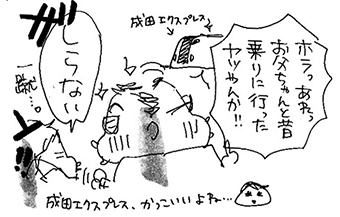 成田エクスプレス
ホラっあれっ
お父ちゃんと昔
乗りに行った
ヤツやんか!!
しらないっ
一蹴…。
成田エクスプレス、かっこいいよね…。